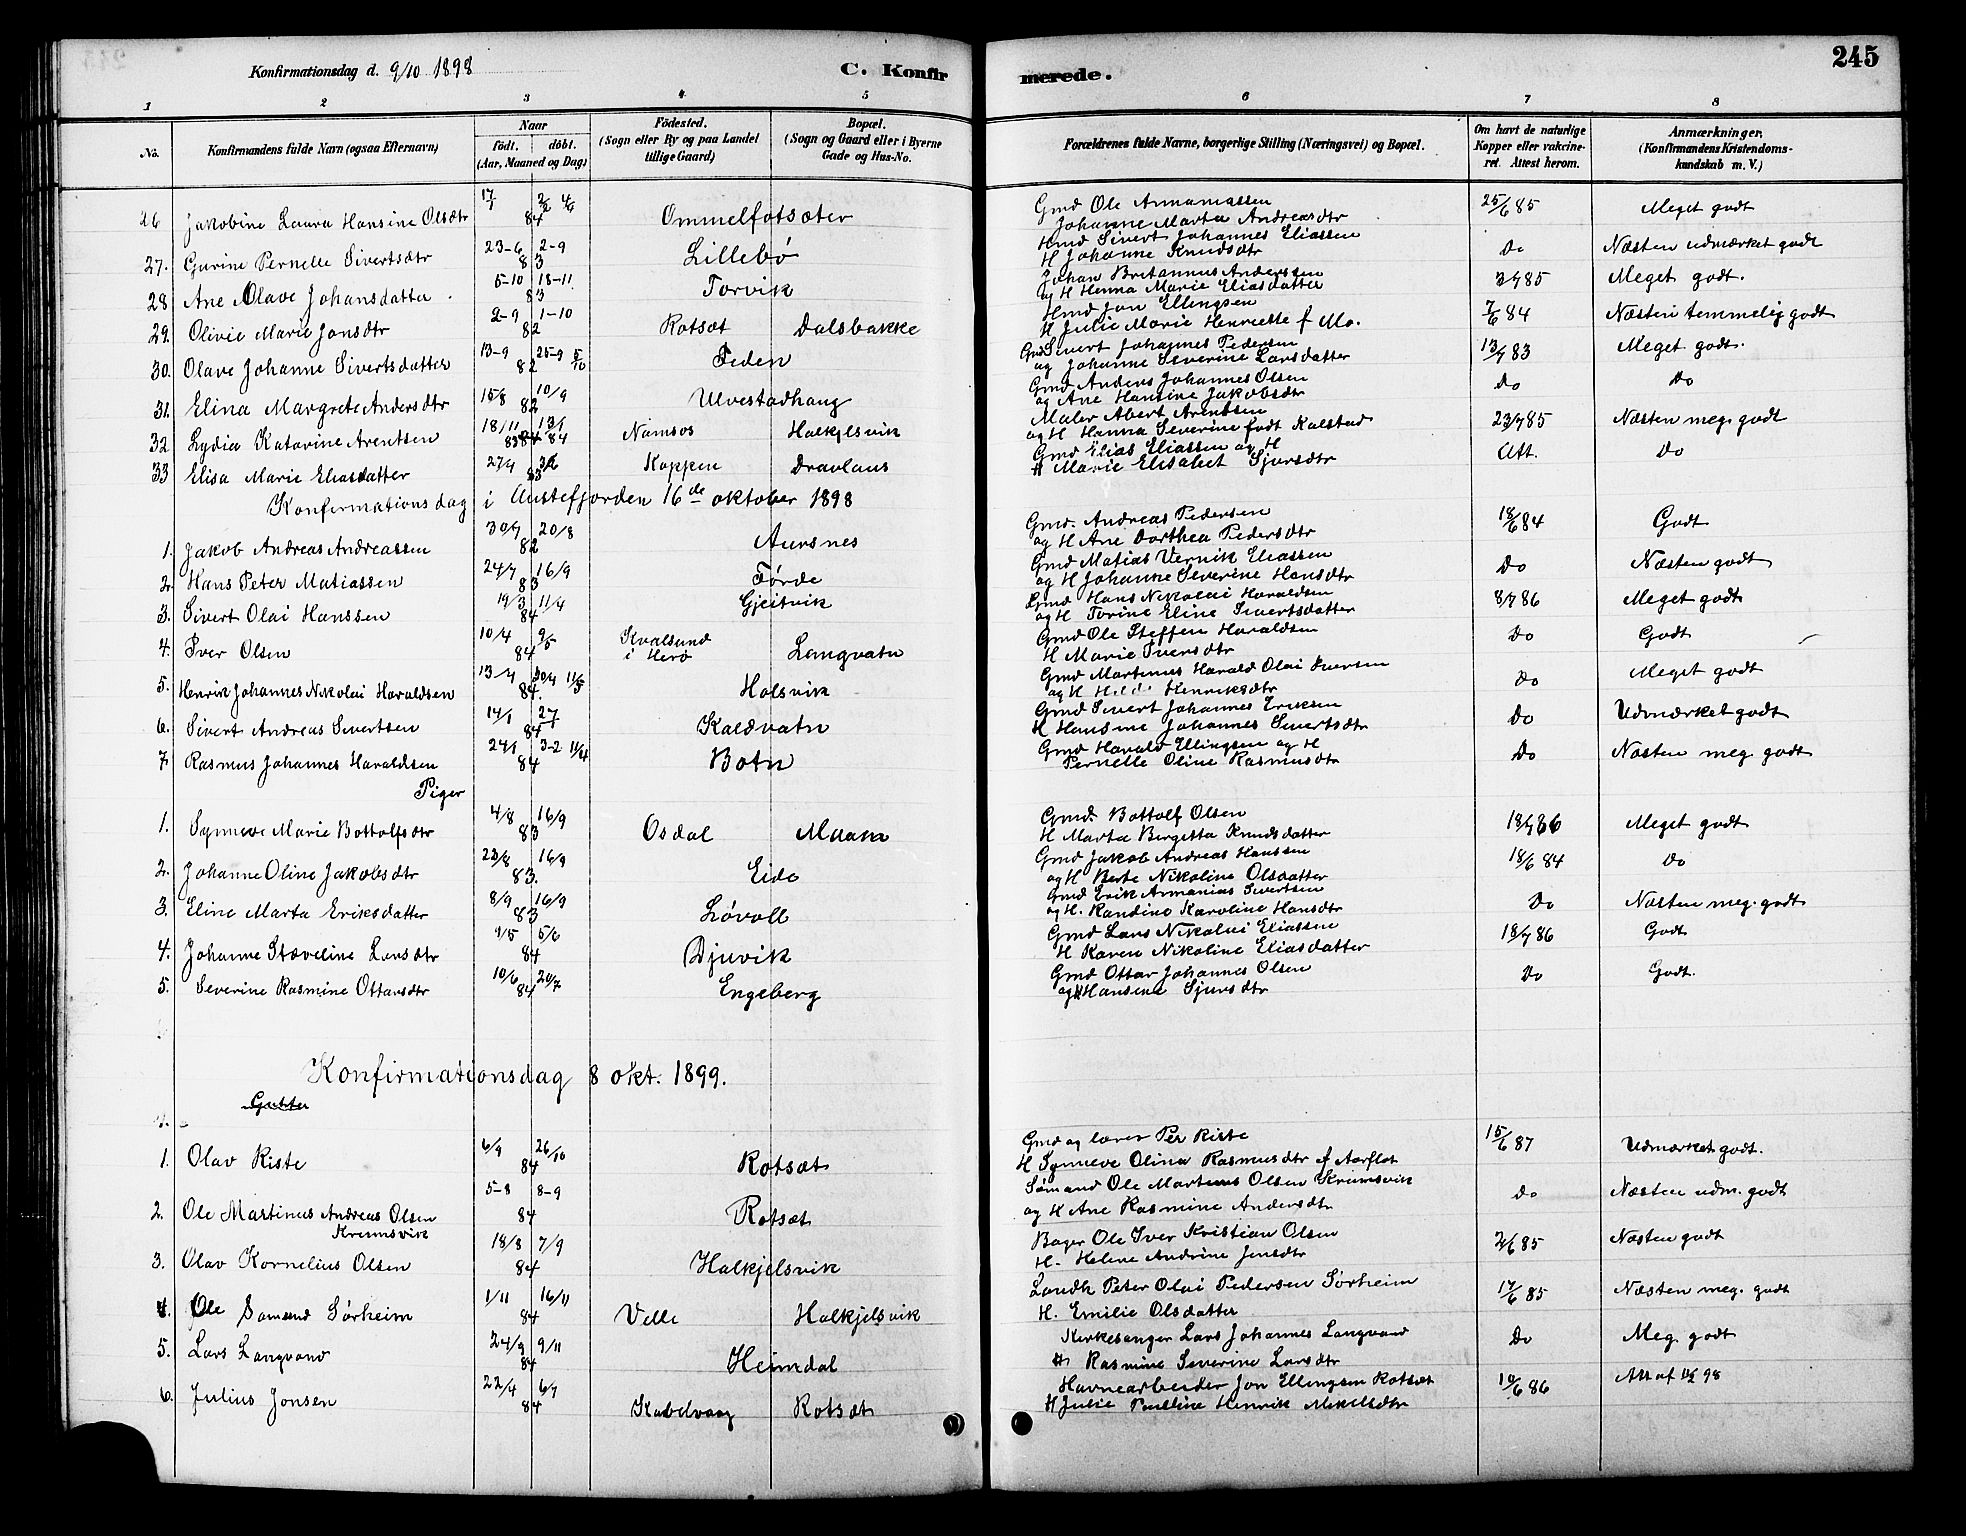 245
Konfirmationsdag d. 9/10 1898 C. Konfirmerede.
1 2 3 4 5 6 7 8
No. Konfirmandens fulde Navn (ogsaa Efternavn) Naar födt. döbt. (Aar, Maaned og Dag) Födested. (Sogn eller By og paa Landet tillige Gaard) Bopæl. (Sogn og Gaard eller i Byerne Gade og Hus-No. Forældrenes fulde Navne, borgerlige Stilling (Næringsvei) og Bopæl. Om havt de naturlige Kopper eller vakcineret. Attest herom. Anmærkninger. (Konfirmandens Kristendomskundskab m. V.)
26 Jakobine Laura Hansine Olsdtr 17/1 84 Ommelfotsæter Gmd Ole Annanassen Johanne Marta Andreasdtr 25/6 85 Meget godt
27. Gurine Pernelle Sivertsdtr 23-6 2-9 83 Lillebø Hmd Sivert Johannes Eliassen H Johanne Knudsdtr Do Næsten udmærket godt
28 Ane Olave Johansdatter 5-10 18-11 83 Torvik Johan Britannus Anderssen og H Henna Marie Eliasdatter 3/7 85 Meget godt.
29. Olivie Marie Jonsdtr 2-9 1-10 82 Rotsæt Dalsbakke Hmd Jon Ellingsen H Julie Marie Henriette f Mo. 7/6 84 Næsten temmelig godt
30. Olave Johanne Sivertsdatter 13-9 25-9 5/10 82 Feden Gmd Sivert Johannes Pedersen og Johanne Severine Larsdatter 13/7 83 Meget godt.
31. Elina Margrete Andersdtr 15/8 10/9 82 Ulvestadhaug Gmd Anders Johannes Olsen og Ane Hansine Jakobsdtr Do Do
32 Lydia Katarine Arentsen 18/11 83 13/1 84 Namsos Halkjelsvik Maler Abert Arentsen og H Hanna Severine født Kalstad 23/7 85 Næsten meg. godt
33 Elisa Marie Eliasdatter 27/4 3/6 83 Koppen Dravlaus Gmd Elias Eliassen og H Marie Elisabet Sjursdtr Att. Do
Konfirmationsdag i Austefjorden 16de oktober 1898
1. Jakob Andreas Andreassen 30/7 20/8 82 Aursnes Gmd. Andreas Pedersen og H Ane Dorthea Pedersdtr 18/6 84 Godt
2. Hans Peter Matiassen 24/7 16/9 83 Førde Gmd Matias Vernik Eliassen og H Johanne Severine Hansdtr Do Næsten godt
3. Sivert Olai Hanssen 19/3 11/4 84 Gjeitvik Gmd Hans Nikolai Haraldsen og H Torine Eline Sivertsdatter 8/7 86 Meget godt
4. Iver Olsen 10/4 9/5 84 Kvalsund i Herø Langvatn Gmd Ole Steffen Haraldsen H Marie Iversdtr Do Godt
5. Henrik Johannes Nikolai Haraldsen 13/4 30/4 11/5 84. Holsvik Gmd Martenus Harald Olai Iversen og H Henriksdtr Do Meget godt
6. Sivert Andreas Sivertsen 14/1 84 Kaldvatn Gmd Sivert Johannes Eriksen H Hansine Johannes Sivertsdtr Do Udmærket godt
7. Rasmus Johannes Haraldsen 24/1 3-2 84 Botn Gmd Harald Ellingsen og H Pernelle Oline Rasmusdtr Do Næsten meg. godt
Piger
1. Synneve Marie Bottolfsdtr 4/8 16/9 83 Osdal Maam Gmd Bottolf Olsen H Marta Birgitta Knudsdatter 18/7 86 Meget godt
2. Johanne Oline Jakobsdtr 23/8 16/9 83. Eide Gmd Jakob Andreas Hanssen og H Berte Nikoline Olsdatter 18/6 84 Do
3. Eline Marta Eriksdatter 8/9 16/9 83 Løvoll Gmd Erik Annanias Sivertsen og H. Randine Karoline Hansdtr Do Næsten meg. godt
4. Johanne Stæveline Larsdtr 9/5 5/6 84 Djuvik Gmd Lars Nikolai Eliassen H Karen Nikoline Eliasdatter 18/7 86 Godt
5. Severine Rasmine Ottarsdtr 10/6 20/7 84 Engeberg Gmd Ottar Johannes Olsen og H Hansine Sjursdtr Do Godt.
Konfirmationsdag 8 okt. 1899.
Gutter
1. Olav Riste 6/9 26/10 84 Rotsæt Gmd og lærer Per Riste H Synneve Olina Rasmusdtr f Aarflot 15/6 87 Udmærket godt.
2. Ole Martinus Andreas Olsen Krumsvik 5-8 8-9 84 Rotsæt Sømand Ole Martinus Olsen Krumsvik og H Ane Rasmine Andersdtr Do Næsten udm. godt
3. Olav Kornelius Olsen 18/8 7/9 84 Halkjelsvik Bager Ole Iver Kristian Olsen H. Helene Andrine Jensdtr 2/6 85 Næsten godt
4. Ole Samund Sørheim 1/11 16/11 84 Velle Halkjelsvik Landh. Peter Olai Pedersen Sørheim H. Emilie Olsdatter 17/6 85 Næsten meg. godt
5. Lars Langvand 24/9 9/11 84 Heimdal Kirkesanger Lars Johannes Langvand H Rasmine Severine Larsdtr Do Meg. godt
6. Julius Jonsen 22/4 6/7 84 Kabelvaag Rotsæt Havnearbeider Jon Ellingsen Rotsæt H Julie Pauline Henrik Mikelsdtr 10/6 86 Att af 98